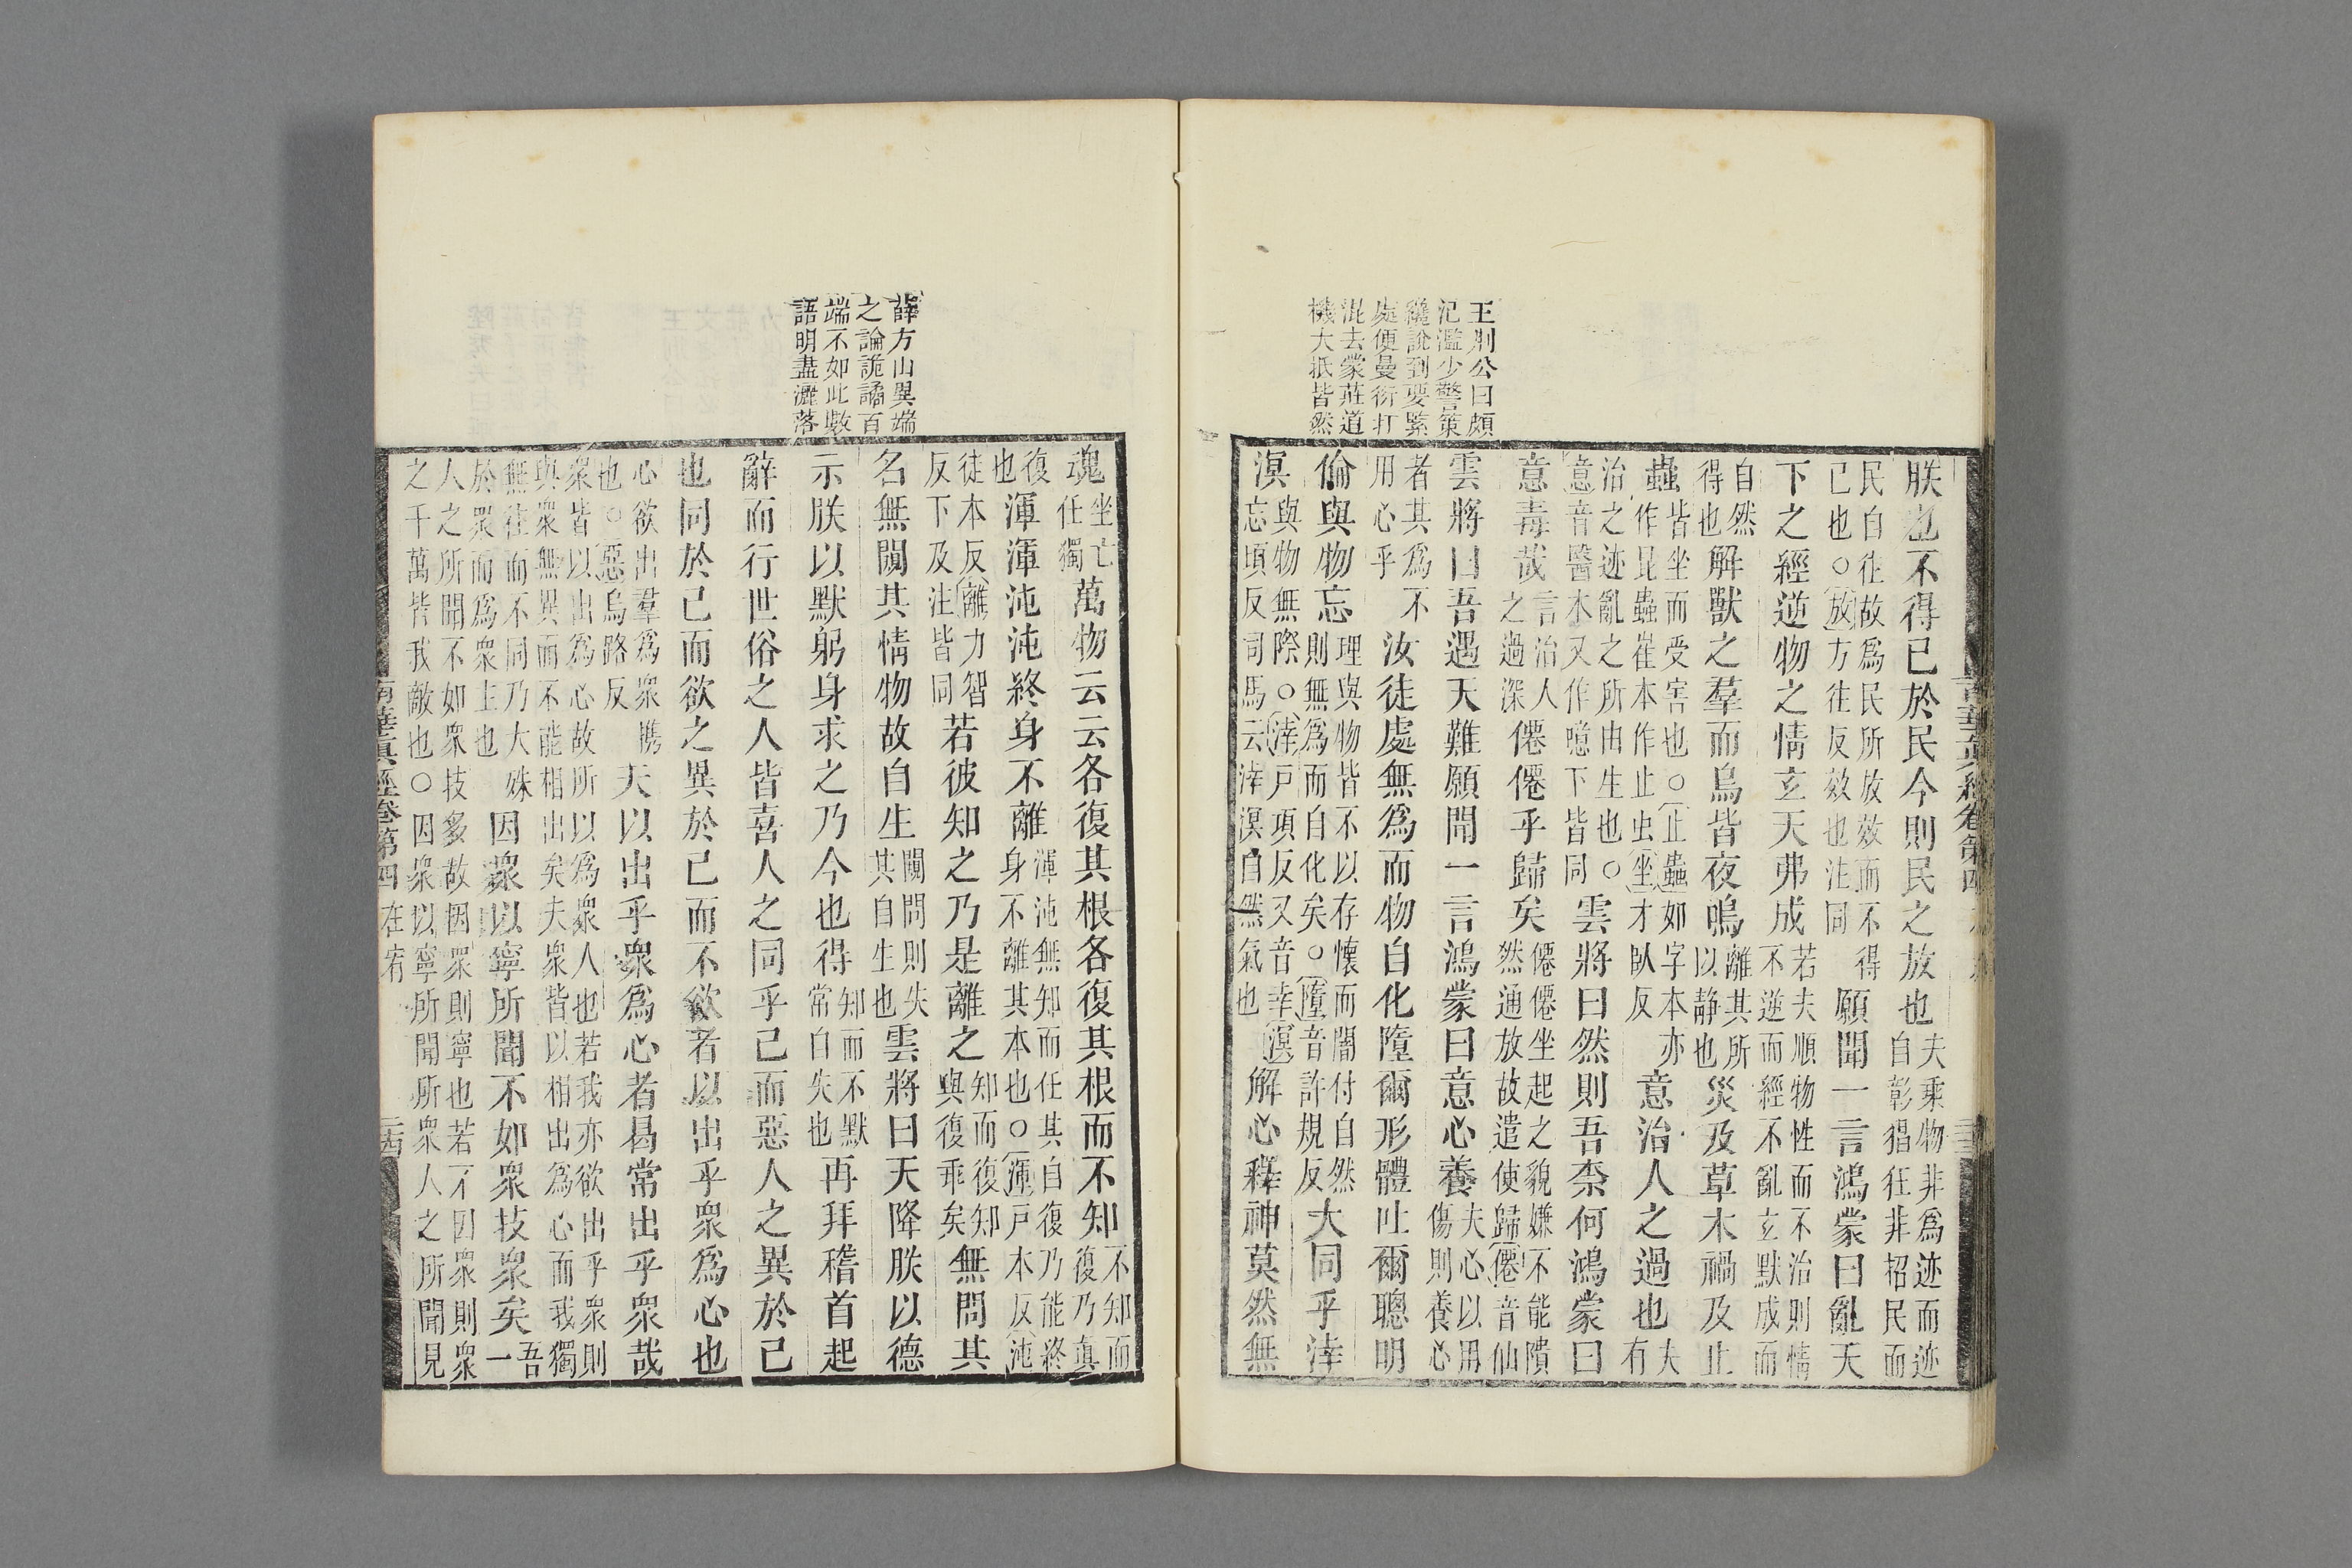 王荆公曰頗
汜濫少警策
纔說到要緊
處便曼衍打
混去蒙莊道
機大抵皆然
朕也不得已於民今則民之放也夫乗物非爲迹而迹自彰猖狂非招民而
民自往故爲民所放效而不得已也○放方往反效也注同願聞一言鴻蒙曰亂天
下之經逆物之情玄天弗成若夫順物性而不治則情不逆而經不亂玄默成而
自然得也解獸之羣而鳥皆夜鳴離其所以靜也災及草木禍及止
蟲皆坐而受害也○止蟲如字本亦作昆蟲崔本作止虫坐才臥反意治人之過也夫有
治之迹亂之所由生也○意音醫本又作噫下皆同雲將曰然則吾柰何鴻蒙曰
意毒哉言治人之過深僊僊乎歸矣僊僊坐起之貌嫌不能隤然通放故遣使歸僊音仙
雲將曰吾遇天難願聞一言鴻蒙曰意心養夫心以用傷則養心
者其爲不用心乎汝徒處無爲而物自化墮爾形體吐爾聰明
倫與物忘理與物皆不以存懷而闇付自然則無爲而自化矣○墮音許規反大同乎涬
溟與物無際○涬戸項反又音幸溟忘頃反司馬云涬溟自然氣也解心釋神莫然無
薛方山異端
之論詭譎百
端不如此數
語明盡灑落
魂坐亡任獨萬物云云各復其根各復其根而不知不知而復乃真
復也渾渾沌沌終身不離渾沌無知而任其自復乃能終身不離其本也○渾戸本反沌
徒本反離力智反下及注皆同若彼知之乃是離之知而復知與復乖矣無問其
名無闚其情物故自生闚問則失其自生也雲將曰天降朕以德
示朕以默躬身求之乃今也得知而不默常自失也再拜稽首起
辭而行世俗之人皆喜人之同乎己而惡人之異於己
也同於己而欲之異於己而不欲者以出乎衆爲心也
心欲出羣爲衆㒞也○惡烏路反夫以出乎衆爲心者曷常出乎衆哉
衆皆以出爲心故所以爲衆人也若我亦欲出乎衆則與衆無異而不能相出矣夫衆皆以相出爲心而我獨
無往而不同乃大殊於衆而爲衆主也因衆以寧所聞不如衆技衆矣吾一
人之所聞不如衆技多故因衆則寧也若不因衆則衆之千萬皆我敵也○因衆以寧所聞所衆人之所聞見
南華真經卷第四 在宥